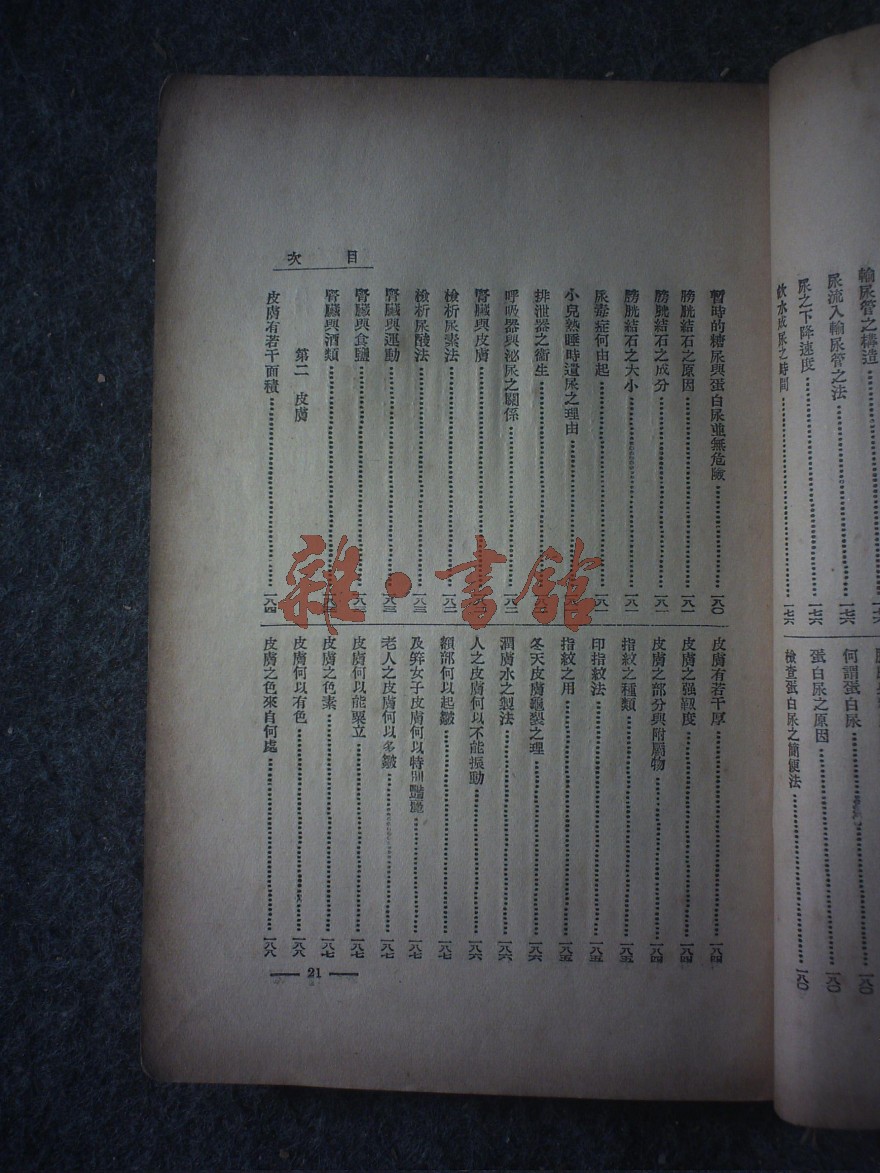 輸尿管之構造
尿流入輸尿管之法……一七六
尿之下降速度……一七六
飲水成尿之時間……一七六
何謂蛋白尿……一八〇
蛋白尿之原因……一八〇
檢查蛋白尿之簡便法……一八〇
目次
暫時的糖尿與蛋白尿並無危險……一八〇
膀胱結石之原因……一八一
膀胱結石之成分……一八一
膀胱結石之大小……一八一
尿毒症何由起……一八一
小兒熟睡時遺尿之理由
排泄器之衞生
呼吸器與泌尿之關係……一八二
腎臟與皮膚
檢析尿素法……一八二
檢析尿酸法……一八三
腎臟與運動……一八三
腎臟與食鹽……一八三
腎臟與酒類
第二 皮膚
皮膚有若干面積……一八四
皮膚有若干厚……一八四
皮膚之强靱度……一八四
皮膚之部分與附屬物……一八四
指紋之種類……一八五
印指紋法……一八五
指紋之用……一八五
冬天皮膚龜裂之理……一八六
潤膚水之製法……一八六
人之皮膚何以不能振動……一八六
額部何以起皺……一八七
及笄女子皮膚何以特別豔麗……一八七
老人之皮膚何以多皺……一八七
皮膚何以能粟立……一八七
皮膚之色素……一八七
皮膚何以有色……一八八
皮膚之色來自何處……一八八
— 21 —
雜·書舘